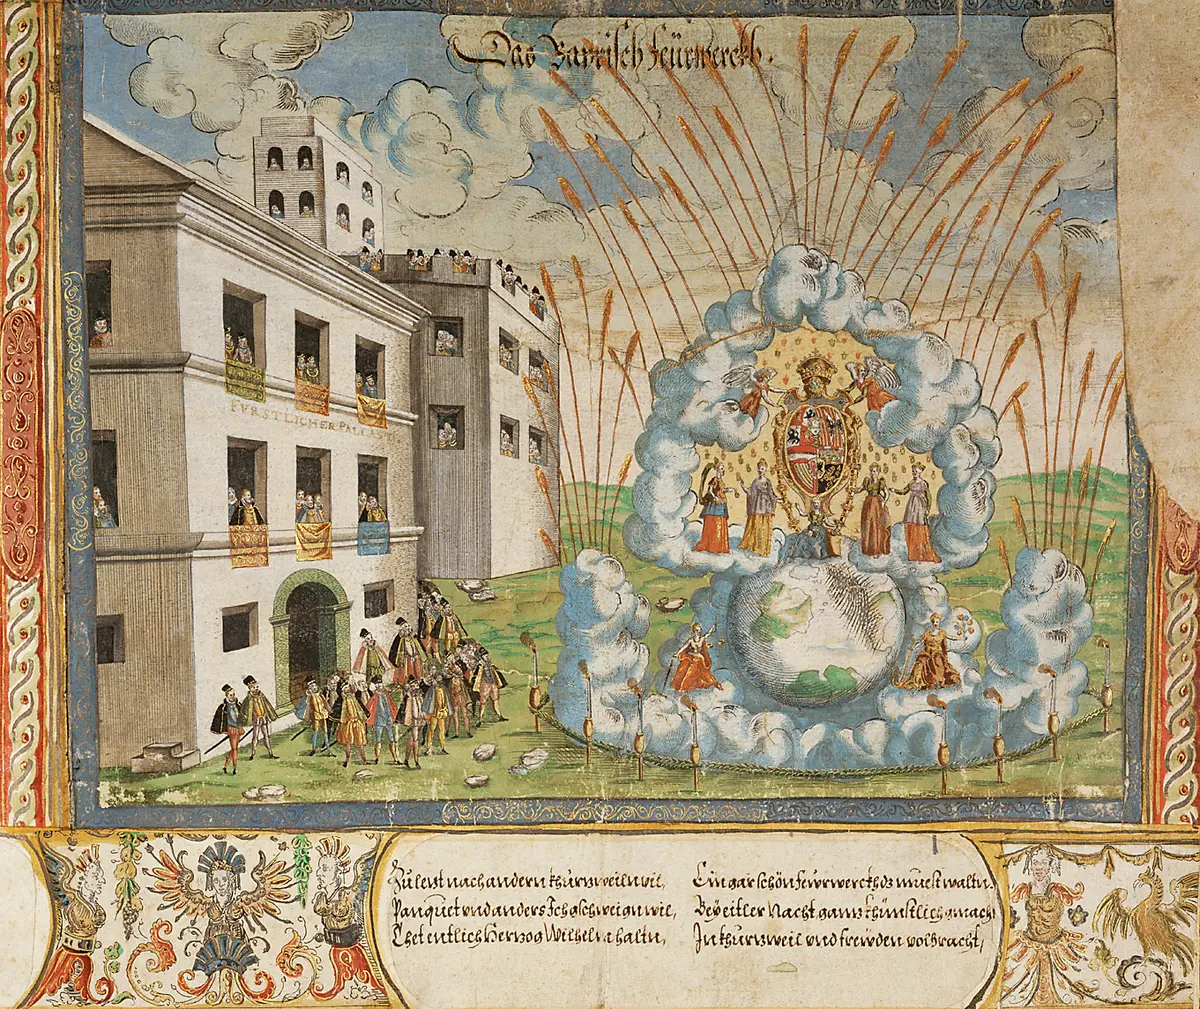 Das Bayrisch feürwerckh.
FVRSTLICHER PALLAST
Zu letzt nach andern khürzweiln vil,
Panquet vnd anders Ich gschweign wil,
Thet entlich Herzog Wilhelm haltn,
Ein gar schön feürwerckh ds muest waltn.
Bey eitler Nacht ganz khünstlich gmacht
In khurzweil vnd frewden volbracht,